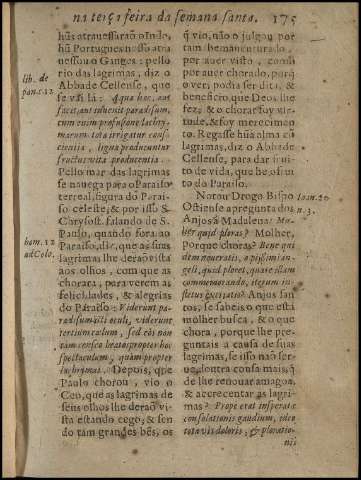 na terça feira da semana santa. 175
hũs atravessarão o Indo,
hũ Portugues nosso atra
uessou o Ganges: pello
rio das lagrimas, diz o
Abbade Cellense, que
se vai lá: Aqua hæc, aut
facit, aut inuenit paradisum,
cum enim profusione lachry-
marum tota irrigatur cons-
cientia, ligna producuntur
fructus vitæ producentia.
Pello mar das lagrimas
se nauega para o Paraiso
terreal, figura do Parai-
so celeste; & por isso S.
Chrysost. falando de S.
Paulo, quando foi ao
Paraiso, diz, que as suas
lagrimas lhe derão vista
aos olhos, com que as
chorara, para verem as
felicidades, & alegrias
do Paraiso: Viderunt pa-
radisum illi oculi, viderunt
tertium cælum, sed eos non
tam censeo beatos propter hoc
spectaculum, quàm propter
lachrimas. Depois, que
Paulo chorou, vio o
Ceo, que as lagrimas de
seus olhos lhe derão vi-
sta estando cego; & sen
do tam grandes bẽs, os
lib. de
pan. c. 12
hom. 12
ad Colo.
q̃ vio, não o julgou por
tam bemauenturado,
por auer visto, como
por auer chorado, porq̃
o ver, podia ser dita, &
beneficio, que Deos lhe
fez; & o chorar foy vir-
tude, & foy merecimen
to. Regasse hũa alma cõ
lagrimas, diz o Abbade
Cellense, para dar frui-
to de vida, que he o frui
to do Paraiso.
Notou Drogo Bispo
Ostiense a pregunta dos
Anjos a Madalena: Mu-
lier quid ploras? Molher,
porque choras? Bene qui
dem noueratis, o piissimi an-
geli, quid ploret, quare illam
commemorando, iterum in
fletus excitatis? Anjos san
tos, se sabeis o que esta
molher busca, & o que
chora, porque lhe pre-
guntais a causa de suas
lagrimas, se isso não ser
ue, doutra cousa mais, q̃
de lhe renouar a magoa,
& accrecentar as lagri-
mas? Prope erat insperatæ
consolationis gaudium, ideo
tota vis doloris, & ploratio-
nis
Ioan. 20
n. 3.